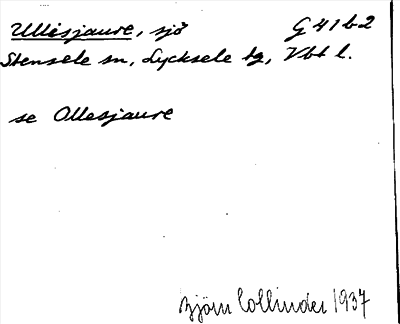 Ullisjaure, sjö G 41 b 2
Stensele sn, Lycksele tg, Vbt l.
se Ollesjaure
Björn Collinder 1937